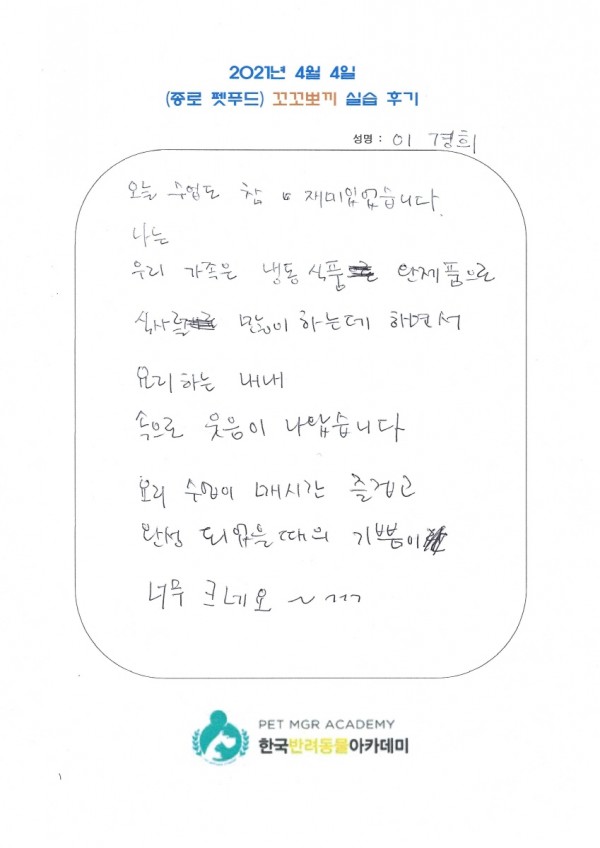 2021년 4월 4일
(종로 펫푸드) 꼬꼬뽀끼 실습 후기
성명 : 이 경희
오늘 수업도 참 재미있었습니다.
나는
우리 가족은 냉동식품 완제품으로
식사를 많이 하는데 하면서
요리하는 내내
속으로 웃음이 나왔습니다
요리 수업이 매시간 즐겁고
완성 되었을때의 기쁨이
너무 크네요 ~ ㄱㄱㄱ
PET MGR ACADEMY
한국반려동물아카데미